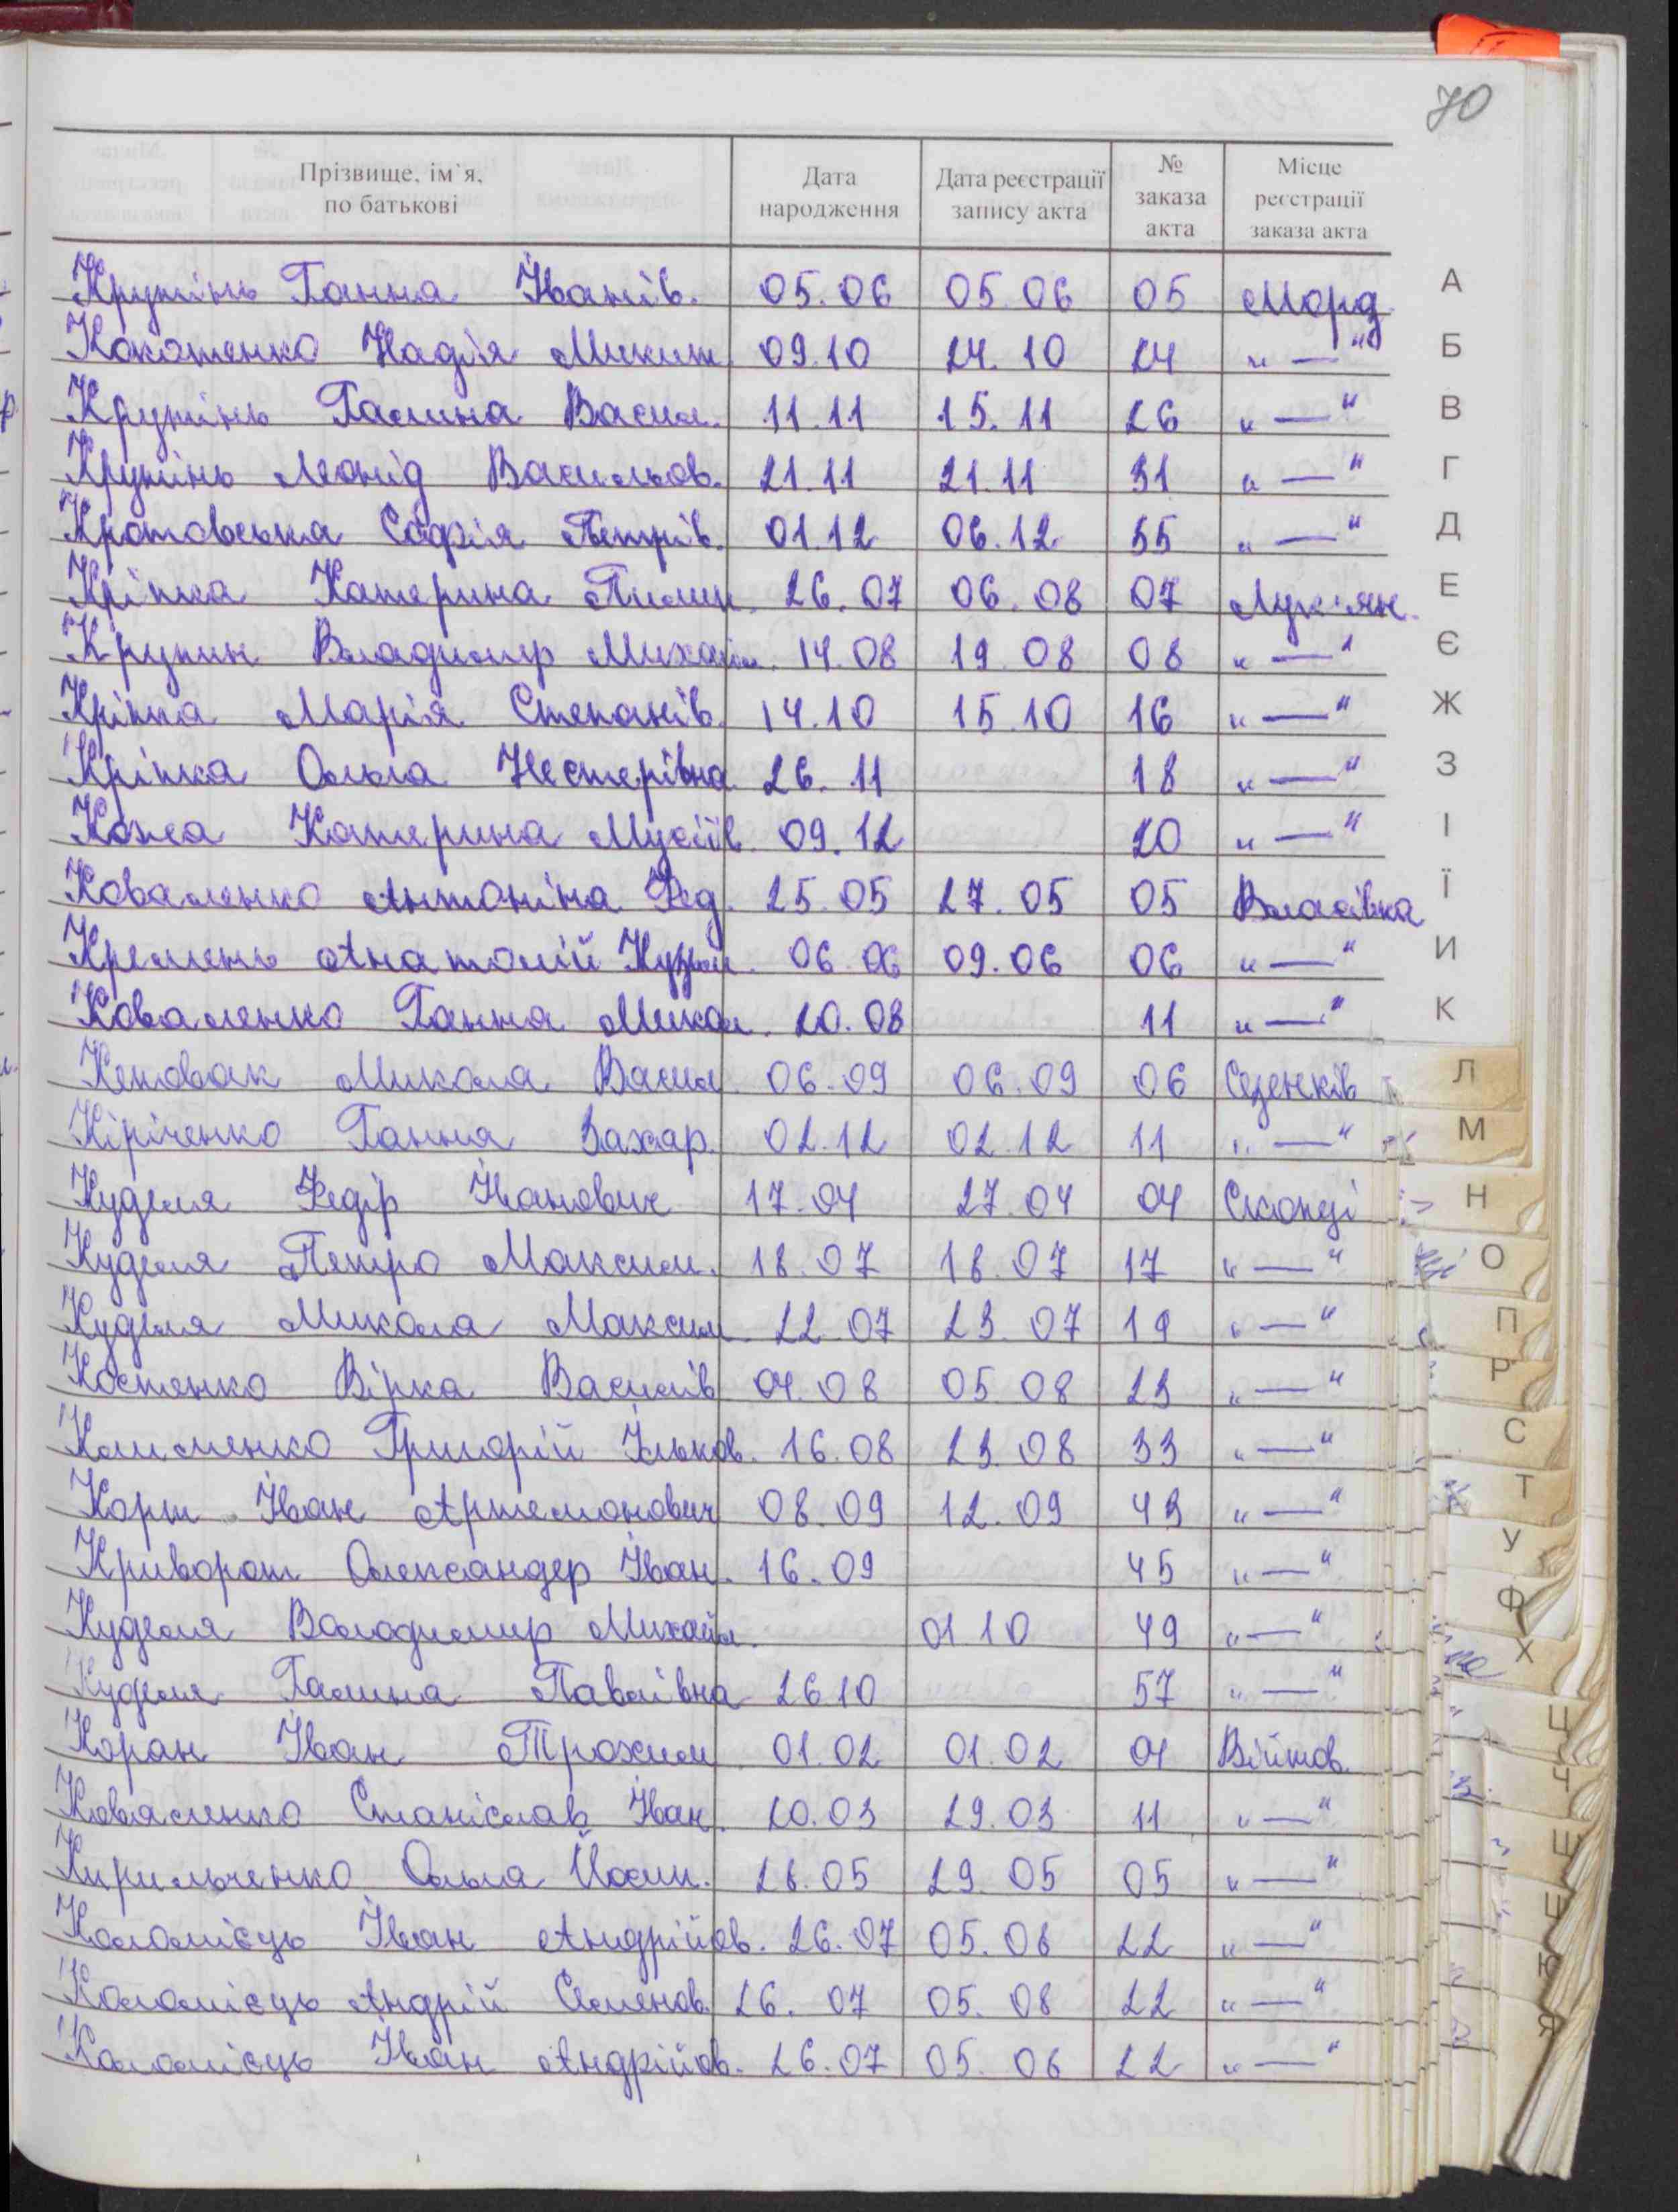 70
Прізвище, ім`я, по батькові | Дата народження | Дата реєстрації запису акта | № заказа акта | Місце реєстрації заказа акта
Крупінь Ганна Іванів. 05.06 05.06 05 Морд
Кокотенко Надія Микит 09.10 24.10 24 " — "
Крупінь Галина Васил. 11.11 15.11 26 " — "
Крупінь Леонід Васильов. 21.11 21.11 31 " — "
Кротовська Софія Петрів. 01.12 06.12 35 " — "
Кріпка Катерина Пилип. 26.07 06.08 07 Лук'ян.
Крупин Владимир Михайл. 14.08 19.08 08 " — "
Кріпка Марія Степанів. 14.10 15.10 16 " — "
Кріпка Ольга Нестерівна 26.11 18 " — "
Кожа Катерина Мусіїв. 09.12 20 " — "
Коваленко Антоніна Фед. 25.05 27.05 05 Власівка
Кремень Анатолій Кузьм. 06.06 09.06 06 " — "
Коваленко Ганна Микол. 20.08 11 " — "
Микола Васил. 06.09 06.09 06 Сезенків
Кіріченко Ганна Захар. 02.12 02.12 11 " — "
Куделя Федір Іванович 17.04 27.04 04 Скопці
Куделя Петро Максим. 18.07 18.07 17 " — "
Куделя Микола Максим. 22.07 23.07 19 " — "
Костенко Вірка Василів 04.08 05.08 23 " — "
Григорій Ільков. 16.08 23.08 33 " — "
Корж Іван Артемонович 08.09 12.09 43 " — "
Криворот Олександер Іван. 16.09 45 " — "
Куделя Володимир Михайл. 01.10 49 " — "
Куделя Галина Павлівна 26.10 57 " — "
Коран Іван Трохим. 01.02 01.02 04 Війтов.
Коваленко Станіслав Іван. 20.03 29.03 11 " — "
Кирильченко Ольга Йосип. 28.05 29.05 05 " — "
Коломієць Іван Андрійов. 26.07 05.08 22 " — "
Коломієць Андрій Семенов. 26.07 05.08 22 " — "
Коломієць Іван Андрійов. 26.07 05.08 22 " — "
А
Б
В
Г
Д
Е
Є
Ж
З
І
Ї
И
К
Л
М
Н
О
П
Р
С
Т
У
Ф
Х
Ц
Ч
Ш
Щ
Ю
Я